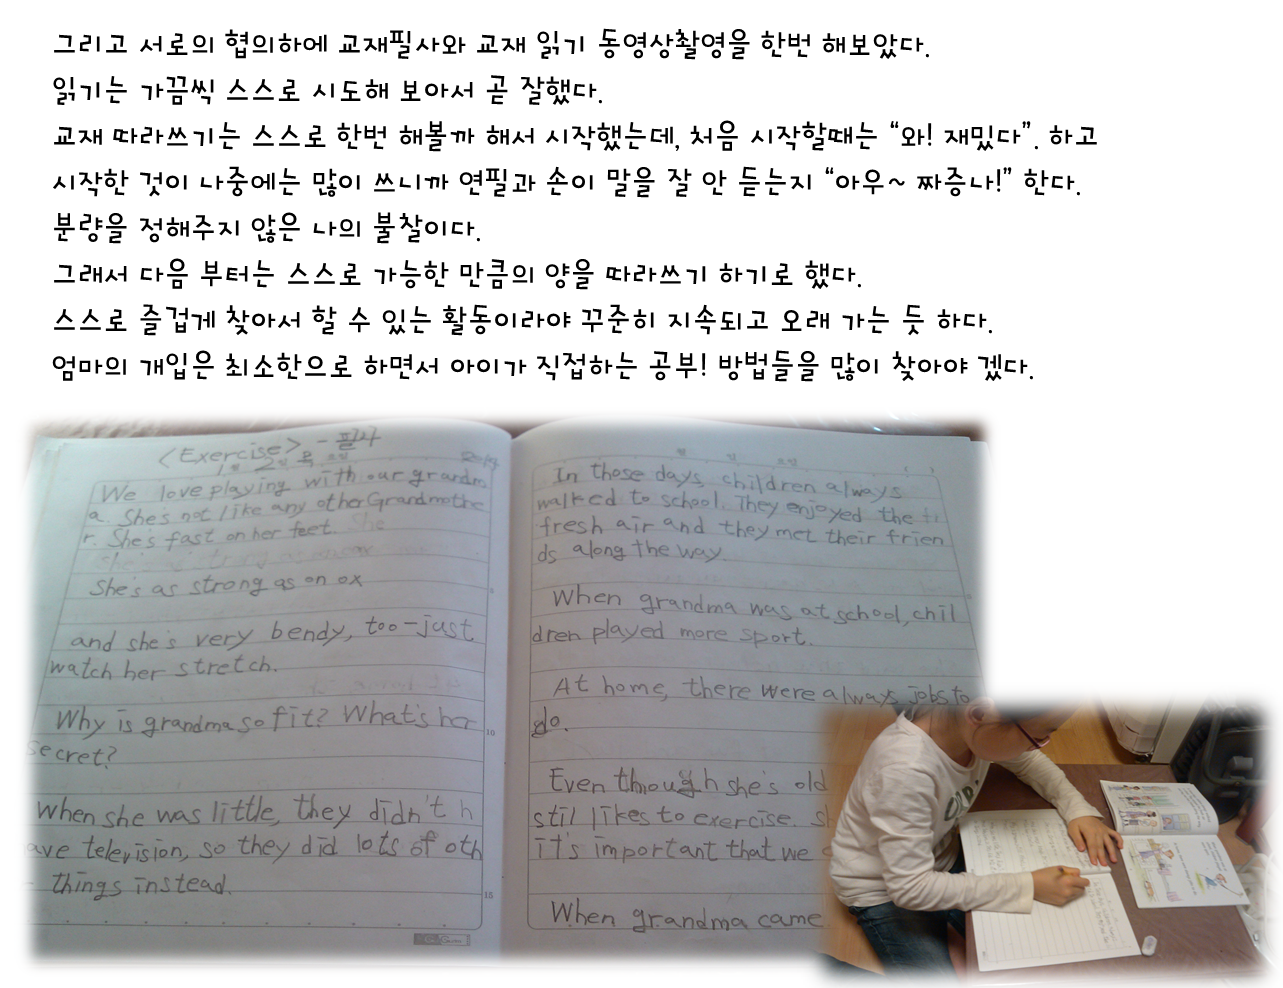 그리고 서로의 협의하에 교재필사와 교재 읽기 동영상촬영을 한번 해보았다.
읽기는 가끔씩 스스로 시도해 보아서 곧 잘했다.
교재 따라쓰기는 스스로 한번 해볼까 해서 시작했는데, 처음 시작할때는 “와! 재밌다”. 하고
시작한 것이 나중에는 많이 쓰니까 연필과 손이 말을 잘 안 듣는지 “아우~ 짜증나!” 한다.
분량을 정해주지 않은 나의 불찰이다.
그래서 다음 부터는 스스로 가능한 만큼의 양을 따라쓰기 하기로 했다.
스스로 즐겁게 찾아서 할 수 있는 활동이라야 꾸준히 지속되고 오래 가는 듯 하다.
엄마의 개입은 최소한으로 하면서 아이가 직접하는 공부! 방법들을 많이 찾아야 겠다.
<Exercise> - 필사
We love playing with our grandm
a. She's not like any other Grandmothe
r. She's fast on her feet.
She's as strong as on ox
and she's very bendy, too-just
watch her stretch.
Why is grandma so fit? What's her
secret?
When she was little, they didn't h
ave television, so they did lots of oth
things instead.
In those days children always
walked to school. They enjoyed the
fresh air and they met their frien
ds along the way.
When grandma was at school, chil
dren played more sport.
At home, there were always jobs to
do.
Even though she's old
still likes to exercise.
it's important that we
When grandma came